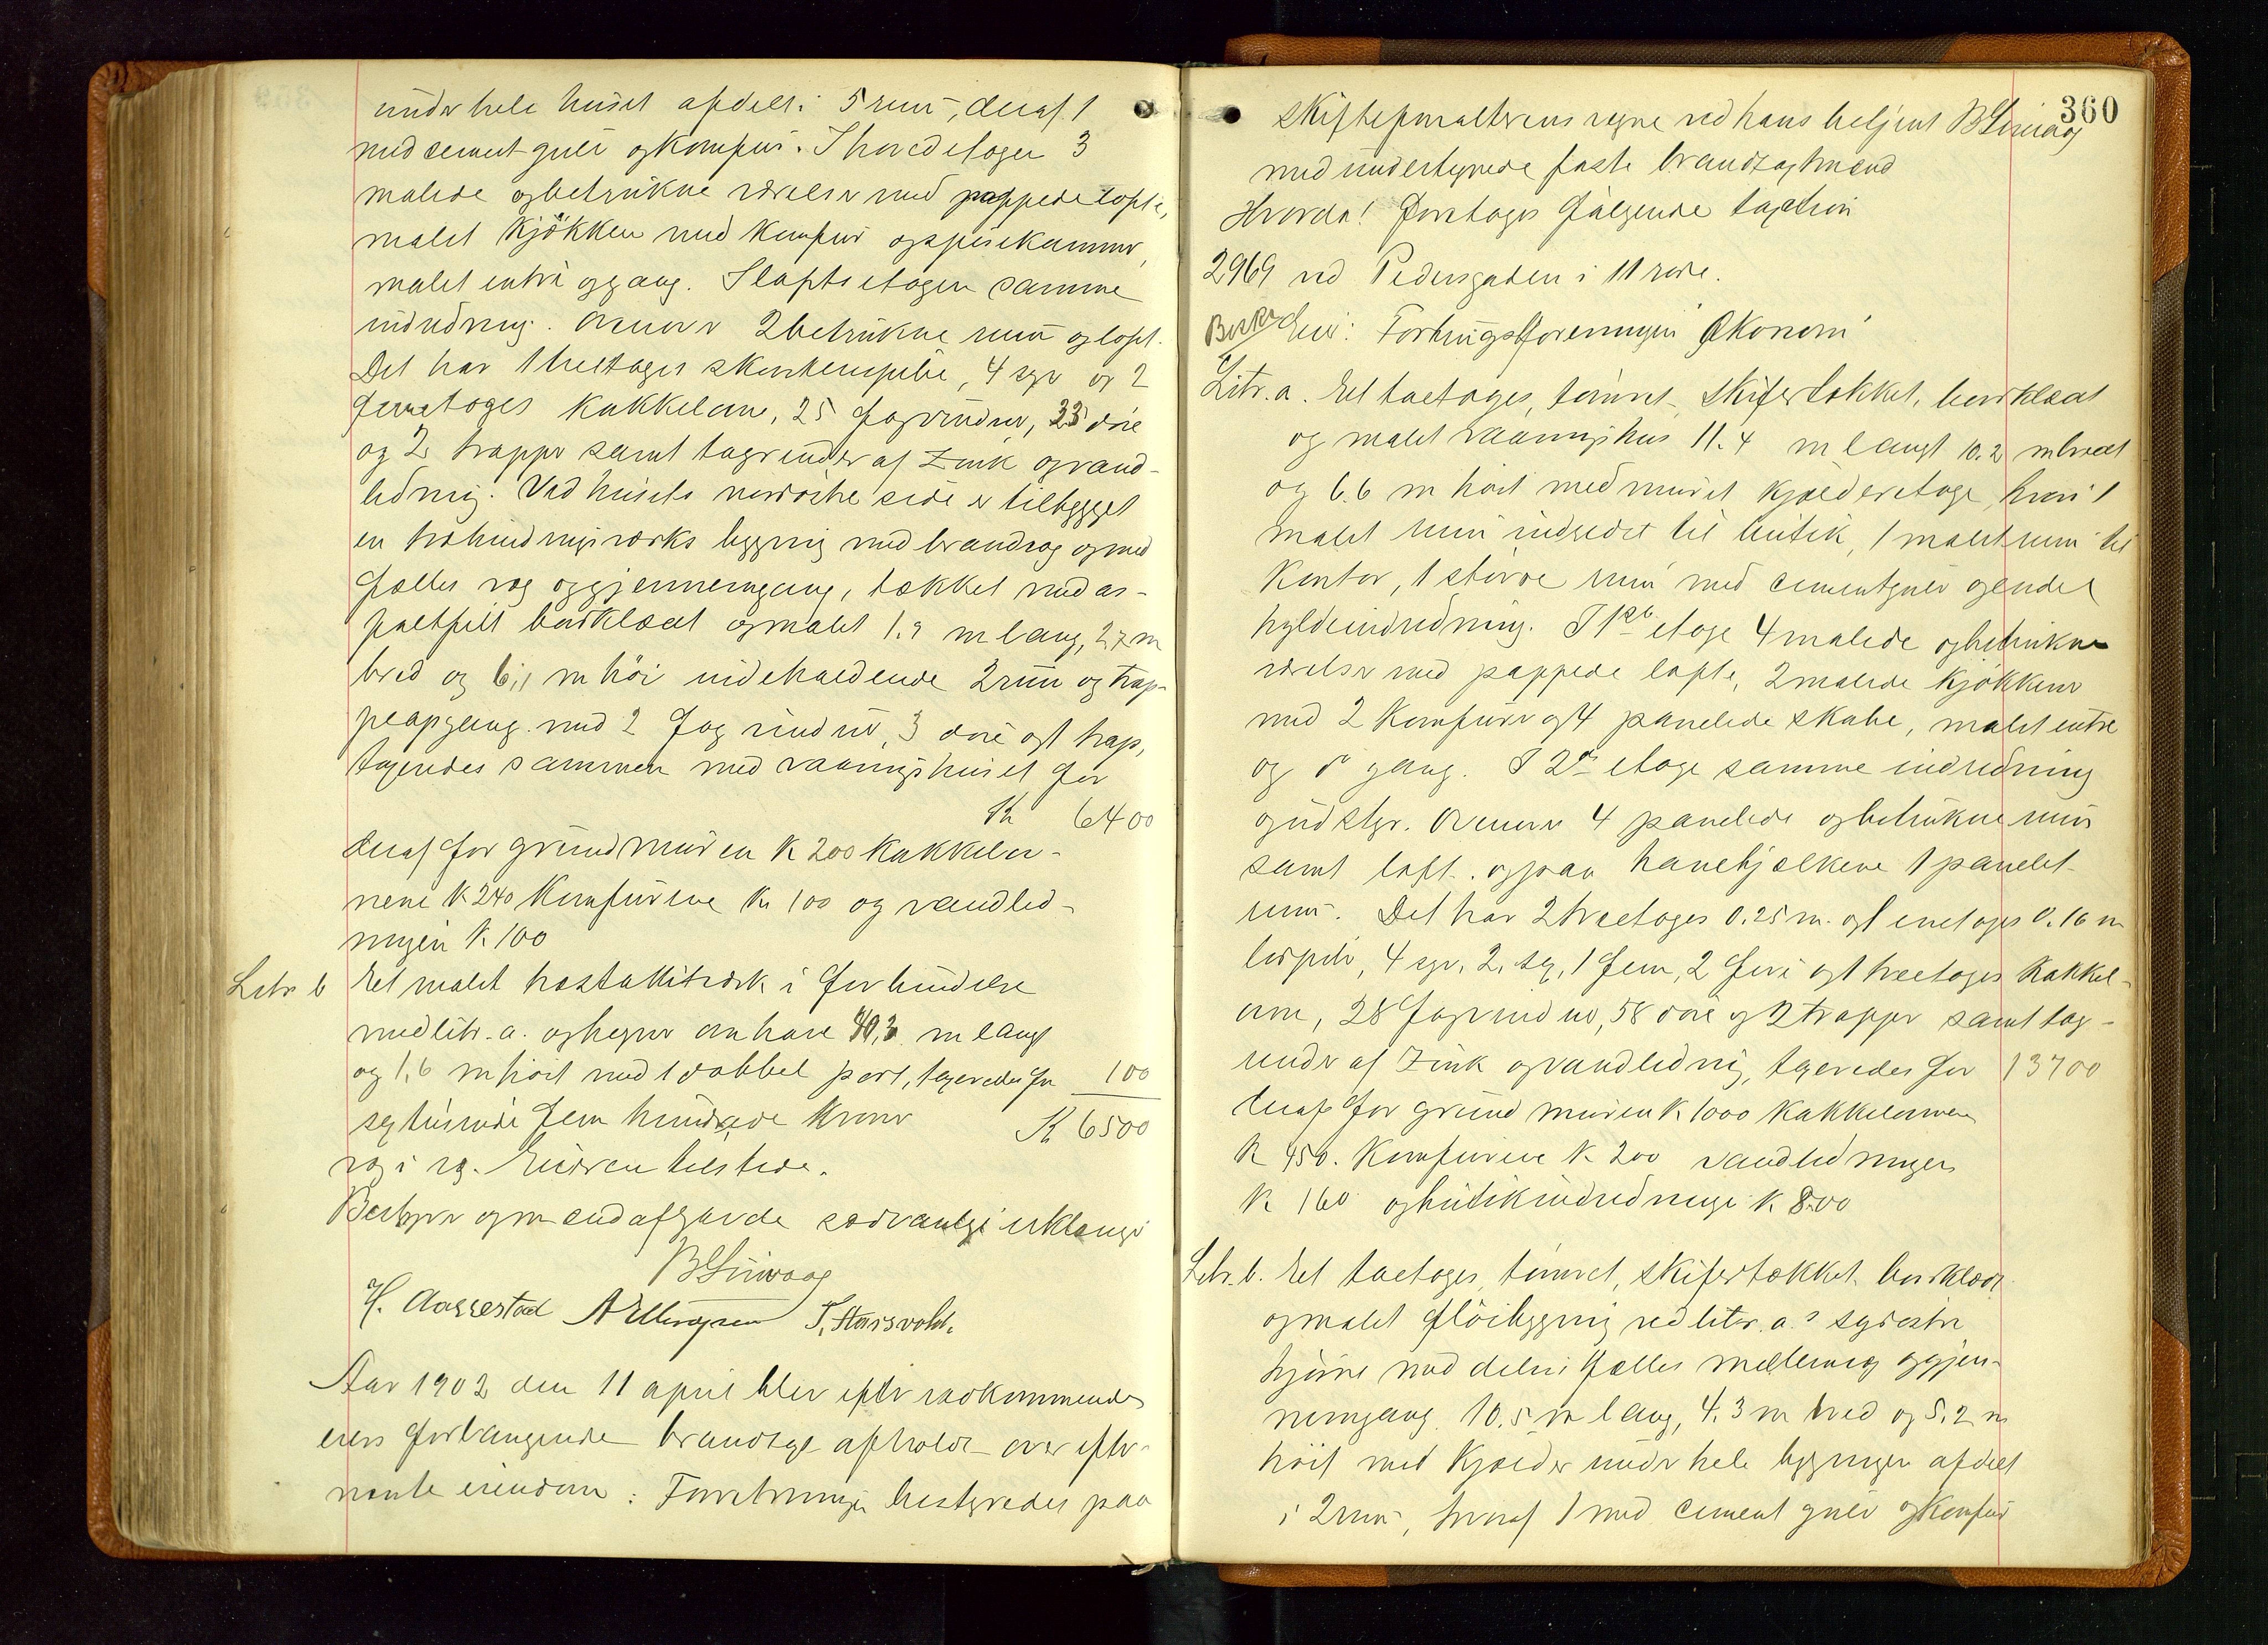 under hele huset afdelt i 5 rum, deraf 1
med cement gulv og komfur. I hovedetagen 3
malede og betrukne værelser med pappede lofte,
malet kjökken med komfur og spisekammer,
malet entre og gang. I loftsetagen samme
indredning. Ovenover 2 betrukne rum og loft.
Det har 1 treetages skorstenspibe, 4 syv og 2
femetages kakkelovne, 25 fag vinduer, 33 döre
og 2 trapper samt tagrender af zink og vand-
ledning. Ved husets nordöstre side er tilbygget
en træbindingsværks bygning med brandvæg og med
fælles væg og gjennemgang, tækket med as-
faltfilt bordklædt og malet 1.9 m lang, 2,7 m
bred og 6,1 m höi indeholdende 2 rum og trap-
peopgang med 2 fag vinduer, 3 döre og 1 trap,
taxeredes sammen med vaaningshuset for
Kr 6400
deraf for grundmuren K 200 kakkelov-
nene K 240 Komfurene Kr 100 og vandled-
ningen K. 100
Litr b Et malet træstakitværk i forbindelse
med litr. a. og hegner om have 40,3 m langt
og 1,6 m höit med 1 dobbel port, taxeredes for 100
sextusinde fem hundrede Kroner K 6500
væg i væg. Eieren tilstede.
Bestyrer og mænd afgavde sædvanlige erklæringer
B Sinwaag
H. Aarrestad A Ellingsen T. Stangvold.
Aar 1902 den 11 april blev efter vedkommende
eiers forlangende brandtaxt afholdt over efter-
nævnte eiendom: Forretningen bestyredes paa
360
skifteforvalterens vegne ved hans betjent B Sinwaag
med undertegnede faste brandtaxtmænd
Hvorda! Foretages fölgende taxation
2969 ved Pedersgaden i 11 rode.
Beskr Eier: Forbrugsforeningen Økonomi
Litr. a. Et toetages, tömret, skifertækket, bordklædt
og malet vaaningshus 11.4 m langt 10.2 m bredt
og 6.6 m höit med muret kjælderetage, hvori 1
malet rum indredet til butik, 1 malet rum til
kontor, 1 större rum med cementgulv og endel
hyldeindredning. I 1ste etage 4 malede og betrukne
værelser med pappede lofte, 2 malede kjökkener
med 2 komfurer og 4 panelede skabe, malet entre
og do gang. I 2den etage samme indredning
og udstyr. Ovenover 4 panelede og betrukne rum
samt loft. og paa hanebjelkene 1 panelet
rum. Det har 2 treetages 0.25 m. og 1 enetages 0.16 m
lerpibe, 4 syv, 2 sex, 1 fem, 2 fire og 1 treetages kakkel-
ovne, 28 fag vinduer, 58 döre og 2 trapper samt tag-
render af zink og vandledning, taxeredes for 13700
deraf for grundmuren K. 1000 kakkelovnene
K 450. Komfurene K 200 vandledningen
K 160 og butikindredningen K. 800
Litr. b. Et toetages, tömret, skifertækket, bordklædt
og malet flöibygning ved litr. a.s sydöstre
hjörne med delvis fælles mellemvæg og gjen-
nemgang 10.5 m lang, 4.3 m bred og 5.2 m
höit med kjælder under hele bygningen afdelt
i 2 rum, hvoraf 1 med cement gulv og komfur